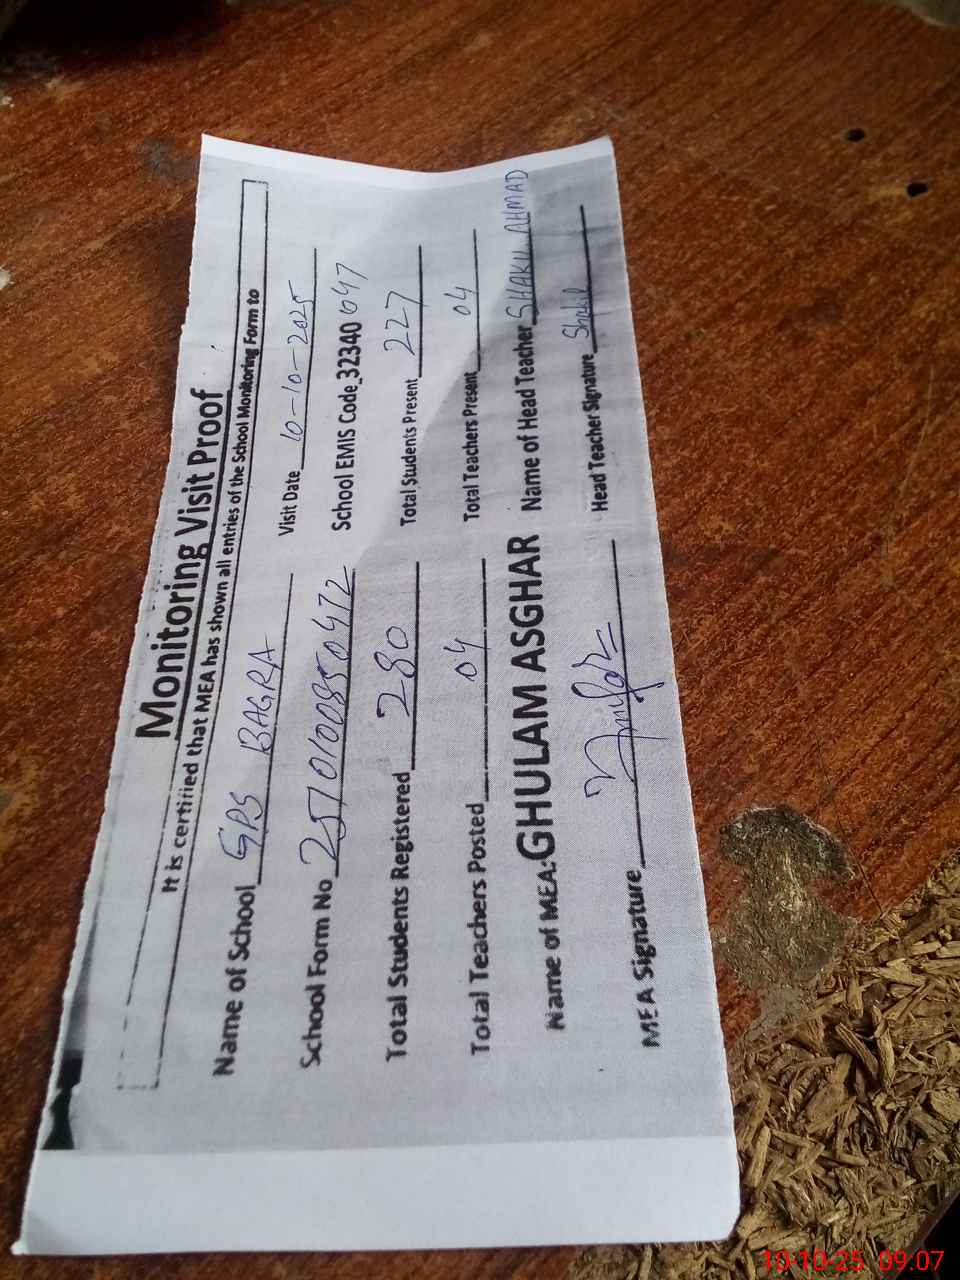 Monitoring Visit Proof
It is certified that MEA has shown all entries of the School Monitoring Form to
Name of School GPS BAGRA Visit Date 10-10-2025
School Form No 2510100850472 School EMIS Code 32340 047
Total Students Registered 280 Total Students Present 227
Total Teachers Posted 04 Total Teachers Present 04
Name of MEA: GHULAM ASGHAR Name of Head Teacher SHAKIL AHMAD
MEA Signature Head Teacher Signature Shakil
10-10-25 09:07